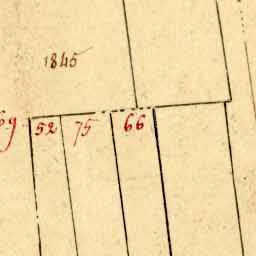 1845
52 75 66